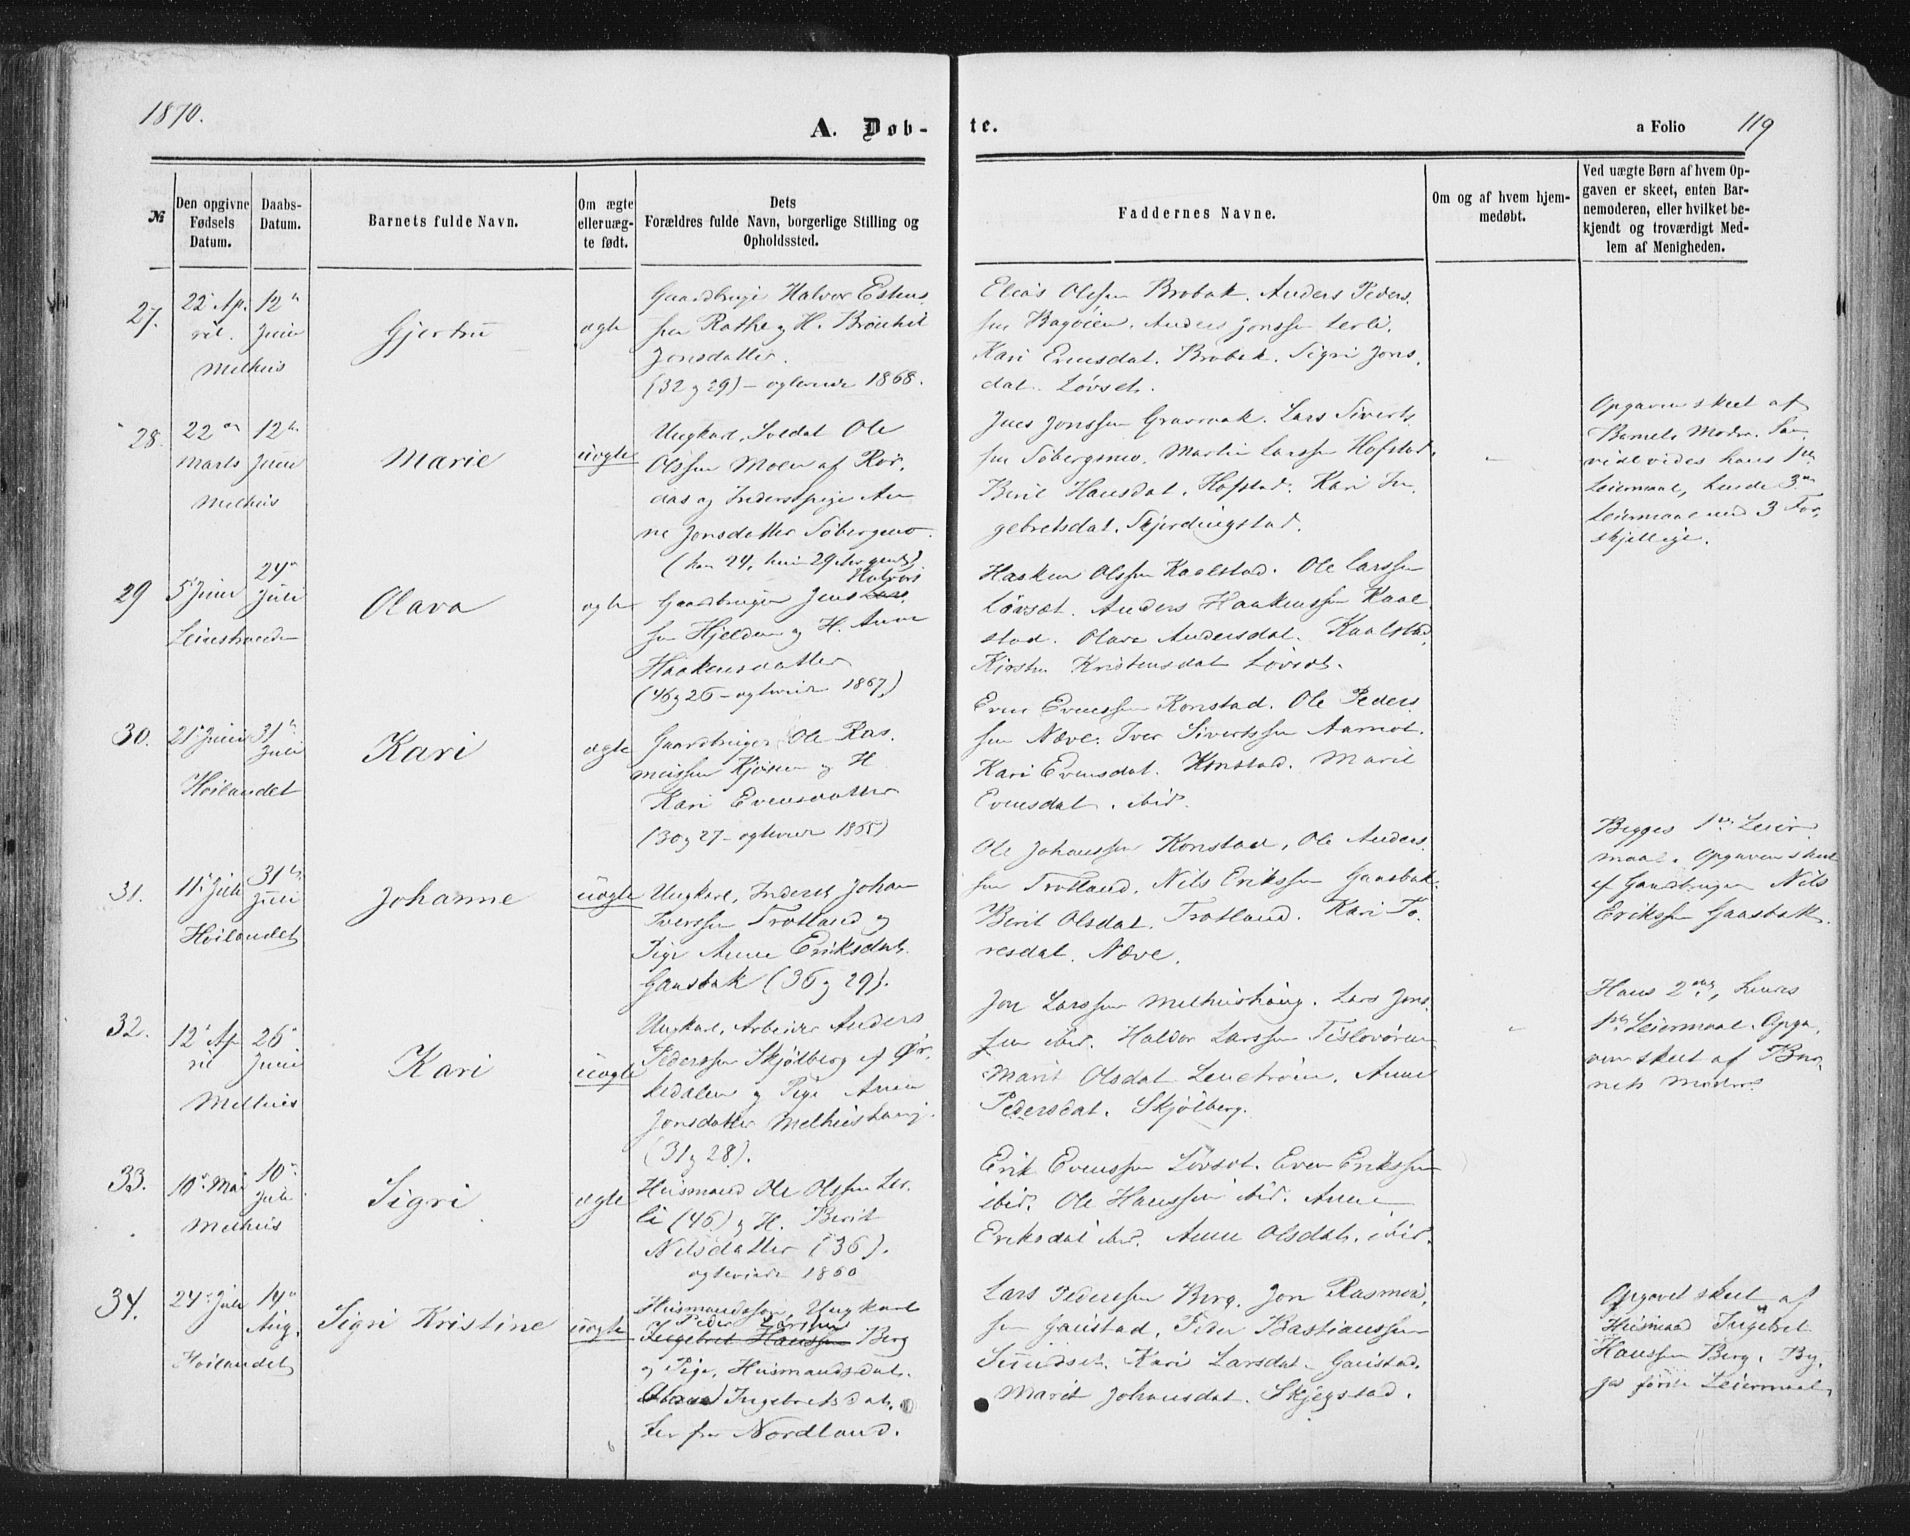 1870.
A. Døb-
te.
a Folio 119
№
Den opgivne Fødsels Datum.
Daabs-Datum.
Barnets fulde Navn.
Om ægte eller uæg-te født.
Dets Forældres fulde Navn, borgerlige Stilling og Opholdssted.
Faddernes Navne.
Om og af hvem hjem-medøbt.
Ved uægte Børn af hvem Op-gaven er skeet, enten Bar-nemoderen, eller hvilket be-kjendt og troværdigt Med-lem af Menigheden.
27.
22 Ap-
ril.
Melhus
12
Juni
Gjertru
ægte
Gaardbruger Halvor Estens
sen Rathe og H.
Jonsdatter.
(32 og 29) - ægteviede 1868.
Elias Olssen Brobak. Anders Peders
sen Bagøien. Anders Jonssen Lerli.
Kari Evensdat. Brobak. Sigri Jons
dat. Løvset.
28.
22
Marts
Melhus
12
Juni
Marie
uægte
Ungkarl, Soldat Ole
Olssen Moen af Rør
aas og Inderstpige An
ne Jonsdatter Søbergmo.
(han 24, hun 29 Aar gml.)
Jens Jonssen Gravraak. Lars Siverts
sen Søbergmo. Martin Larssen Hofstad.
Berit Hansdat. Hofstad. Kari In
gebretsdat. Skjerdingstad.
Opgaven skeet af
Barnets Moder. Saa
vidt vides hans 1ste
Leiermaal, hendes 3die
Leiermaal med 3 For
skjellige.
29
5 Juni
Leinstranden
24
Juli
Olava
ægte
Gaardbruger Jens Halvors
sen Hjelden og H. Anne
Haakensdatter
(46 og 26 - ægteviede 1867)
Haaken Olssen Kaalstad. Ole Larssen
Løvset. Anders Haakenssen Kaal
stad. Olava Andersdat. Kaalstad.
Kjersten Kristensdat Løvset.
30.
21 Juni
Høilandet
31
Juli
Kari
ægte
Gaardbruger Ole Ras
mussen Kjøsen og H.
Kari Evensdatter
(30 og 27 - ægteviede 1865)
Even Evenssen Konstad. Ole Peders
sen Næve. Iver Sivertssen Aamot.
Kari Evensdat. Konstad. Marit
Evensdat. ibid.
31.
11 Juli
Høilandet
31
Juli
Johanne
uægte
Ungkarl, Inderst Johan
Iverssen Trotland og
Pige Anne Eriksdat.
Gaasbak (36 og 29).
Ole Johanssen Konstad. Ole Anders
sen Trotland. Nils Erikssen Gaasbak.
Berit Olsdat. Trotland. Kari To
resdat. Næve.
Begges 1ste Leier
maal. Opgaven skeet
af Gaardbruger Nils
Erikssen Gaasbak.
32.
12 Ap
ril
Melhus
26
Juni
Kari
uægte
Ungkarl, Arbeider Anders
Pederssen Skjølberg af Ør
kedalen og Pige Anne
Jonsdatter Melhushaug.
(31 og 28).
Jon Larssen Melhushaug. Lars Jons
sen ibid. Haldor Larssen
Marit Olsdat. Anne
Pedersdat. Skjølberg.
Hans 2det, hendes
1ste Leiermaal. Opga
ven skeet af Bar
nets Moder.
33.
10 Mai
Melhus
10
Juli
Sigri
ægte
Husmand Ole Olssen Ler
li (46) og H. Berit
Nilsdatter (36).
ægteviede 1860
Erik Evenssen Løvset. Even Erikssen
ibid. Ole Hanssen ibid. Anne
Eriksdat ibid. Anne Olsdat. ibid.
34.
24 Juli
Høilandet
14
Aug.
Sigri Kristine
uægte
Husmandssøn, Ungkarl
Peder Larssen
Ingebret Hanssen Berg
og Pige, Husmandsdat.
Ingebretsdat.
fra Nordland.
Lars Pederssen Berg. Jon Rasmus
sen Gaustad. Peder Bastianssen
Sundset. Kari Larsdat. Gaustad.
Marit Johansdat. Skjegstad.
Opgavet skeet af
Husmand Ingebret
Hanssen Berg. Beg
ges første Leiermaal.